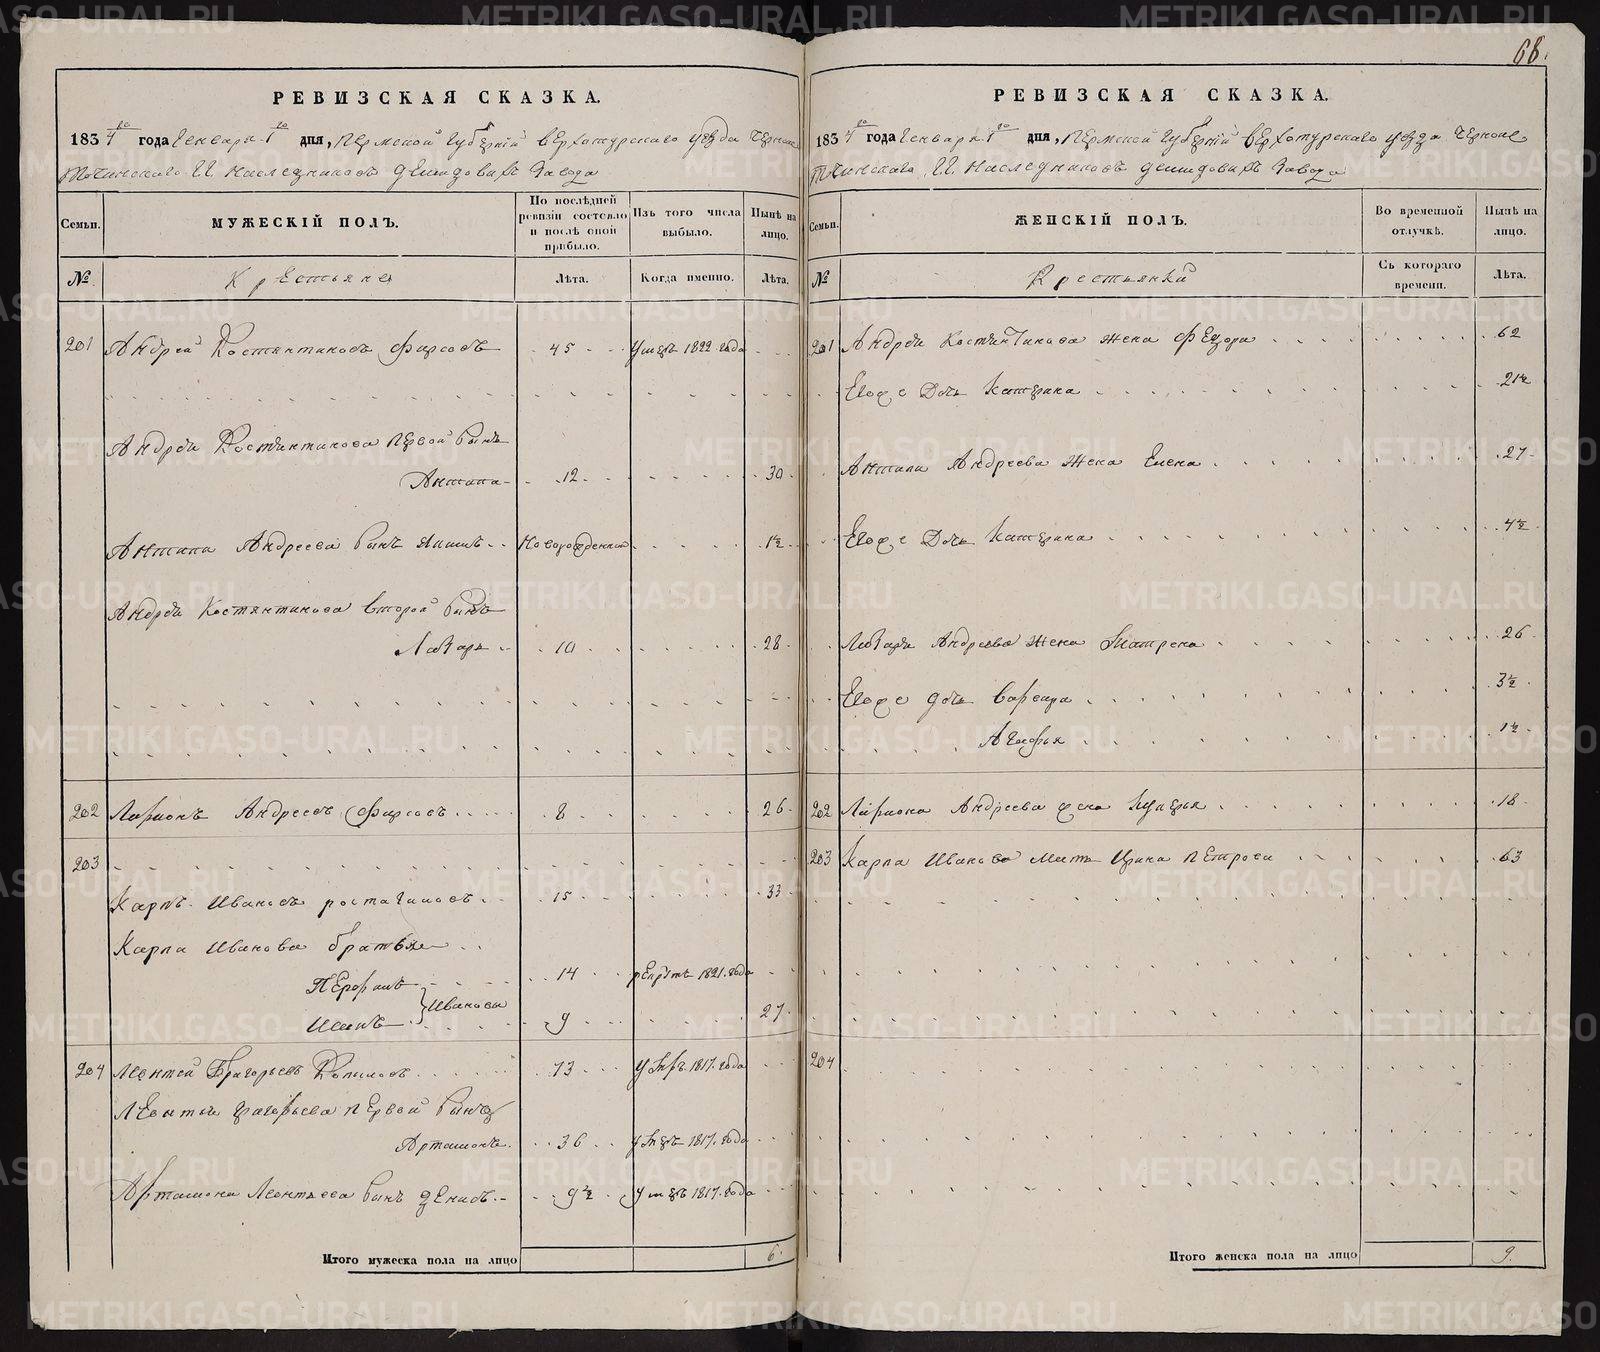 68.
РЕВИЗСКАЯ СКАЗКА.
1834го года Генваря 1го дня, Пермской Губернiй верхотурскаго уезда Черно
Наследников Демидовых Завода
Семьи.
МУЖЕСКІЙ ПОЛЪ.
По послѣдней ревизіи состояло и послѣ оной прибыло.
Изъ того числа выбыло.
Нынѣ на лицо.
№
Крестьяне
Лѣта.
Когда именно.
Лѣта.
201 Андрей Костянтиновъ Фирсовъ 45 умерѣ 1822 года
Андрея Костянтинова первой сынъ
Антипа 12 30
Антипа Андреева сынъ новорожденный 1½
Андрея Костянтинова второй сынъ
Лазарь 10 28
202 Ларионъ Андреевъ Фирсовъ 8 26
203
Карпъ Ивановъ 15 33
Карпа Иванова братья
14 1821 года
Ивановы
9 27
204 Леонтей Григорьевъ Копыловъ 73 умеръ 1817 года
Леонтья Григорьева первой сынъ
Артамонъ 36 умеръ 1817 года
Артамона Леонтьева сынъ Денисъ 9½ умеръ 1817 года
Итого мужеска пола на лицо 6.
РЕВИЗСКАЯ СКАЗКА.
1834го года Генваря 1го дня, Пермской Губернiй верхотурскаго уезда Черно
Наследников Демидовых Завода
Семьи.
ЖЕНСКІЙ ПОЛЪ.
Во временной отлучкѣ.
Нынѣ на лицо.
№
Крестьянки
Съ котораго времени.
Лѣта.
201 Андрея Костянтинова жена Федора 62
Евоже дочь Катерина 21½
Антипа Андреева жена Елена 27
Евоже дочь Катерина 4½
Лазаря Андреева жена Матрена 26
Евоже дочь Варвара 3½
Агафья 1½
202 Лариона Андреева жена Лукерья 18
203 Карпа Иванова мать Ирина Петрова 63
204
Итого женска пола на лицо 9.
METRIKI.GASO-URAL.RU